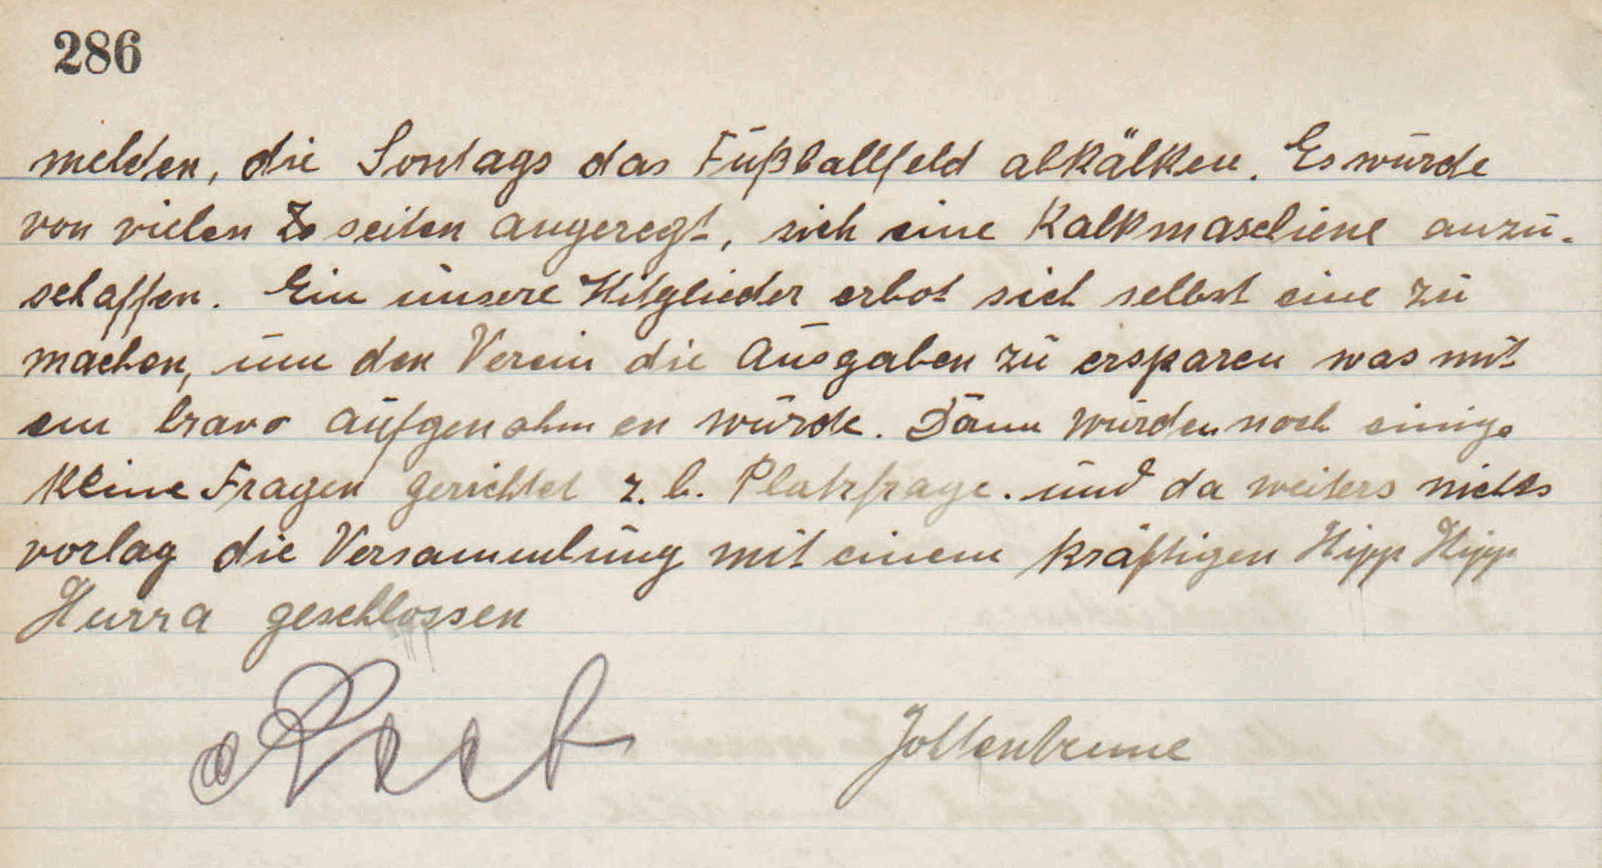 286
melden, die Sontags das Fußballfeld abkälken. Es wurde
von vielen seiten angeregt, sich eine Kalkmaschiene anzu-
schaffen. Ein unsere Mitglieder erbot sich selbst eine zu
machen, um den Verein die Ausgaben zu ersparen was mit
ein bravo aufgenohmen wurde. Dann wurden noch einige
kleine Fragen gerichtet z. b. Platzfrage. und da weiters nichts
vorlag die Versammlung mit einem kräftigen Hipp Hipp
Hurra geschlossen